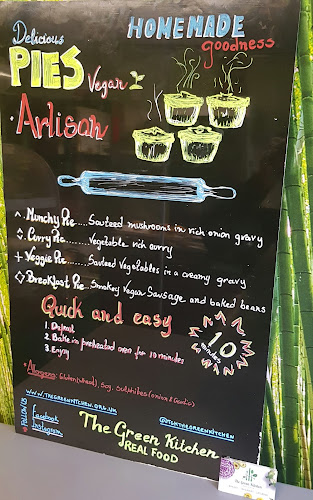 Delicious
HOMEMADE
goodness
PIES Vegan
Artisan
^. Munchy Pie..... Sauteed mushrooms in rich onion gravy
Curry Pie....... Vegetable rich curry
+ Veggie Pie...... Sauteed Vegetables in a creamy gravy
◇ Breakfast Pie... Smokey Vegan Sausage and baked beans
Quick and easy
1. Defrost
2. Bake in preheated oven for 10 minutes
3. Enjoy
10
minutes
* Allergens: Gluten (wheat), Soy, Sulphites (onion & Garlic)
WWW.THEGREENKITCHEN.ORG.UK
FOLLOW US
Facebook
Instagram
The Green Kitchen
REAL FOOD